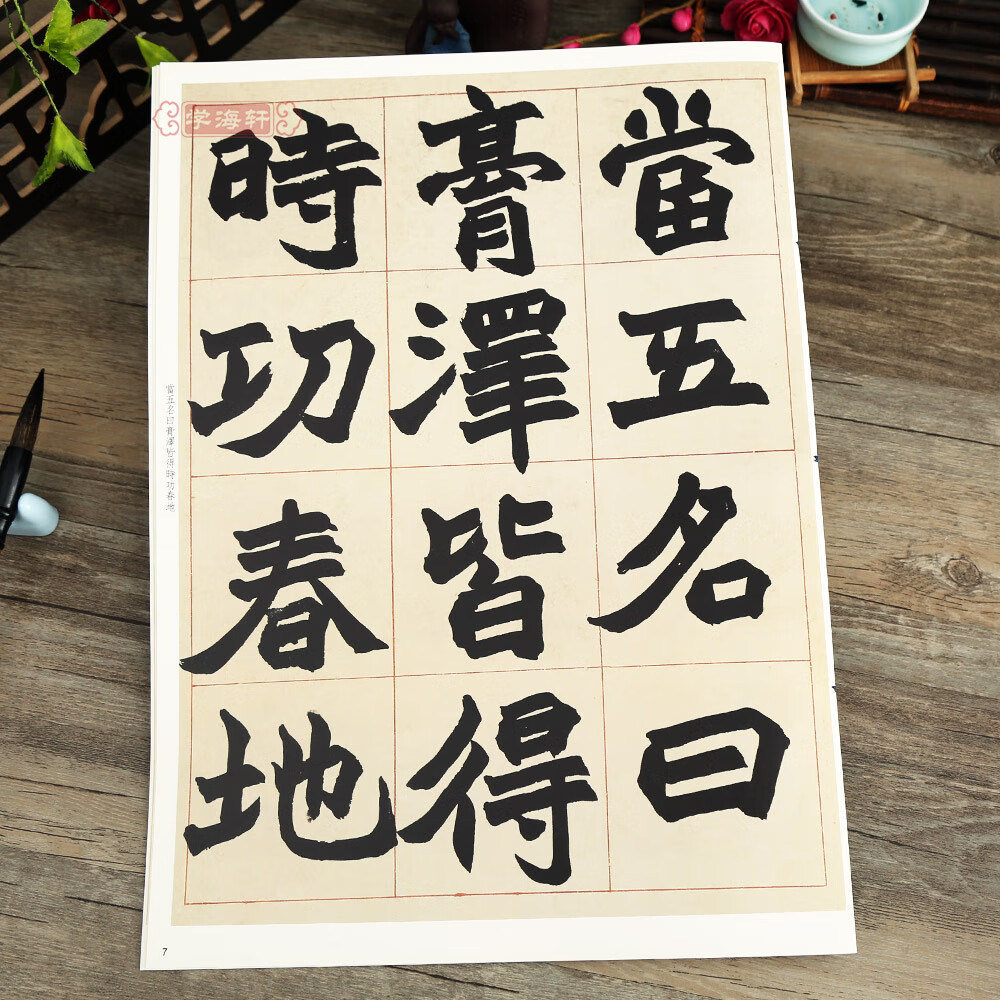 當五名曰
膏澤皆得
時功春地
當五名曰膏澤皆得時功春地
学海轩
7